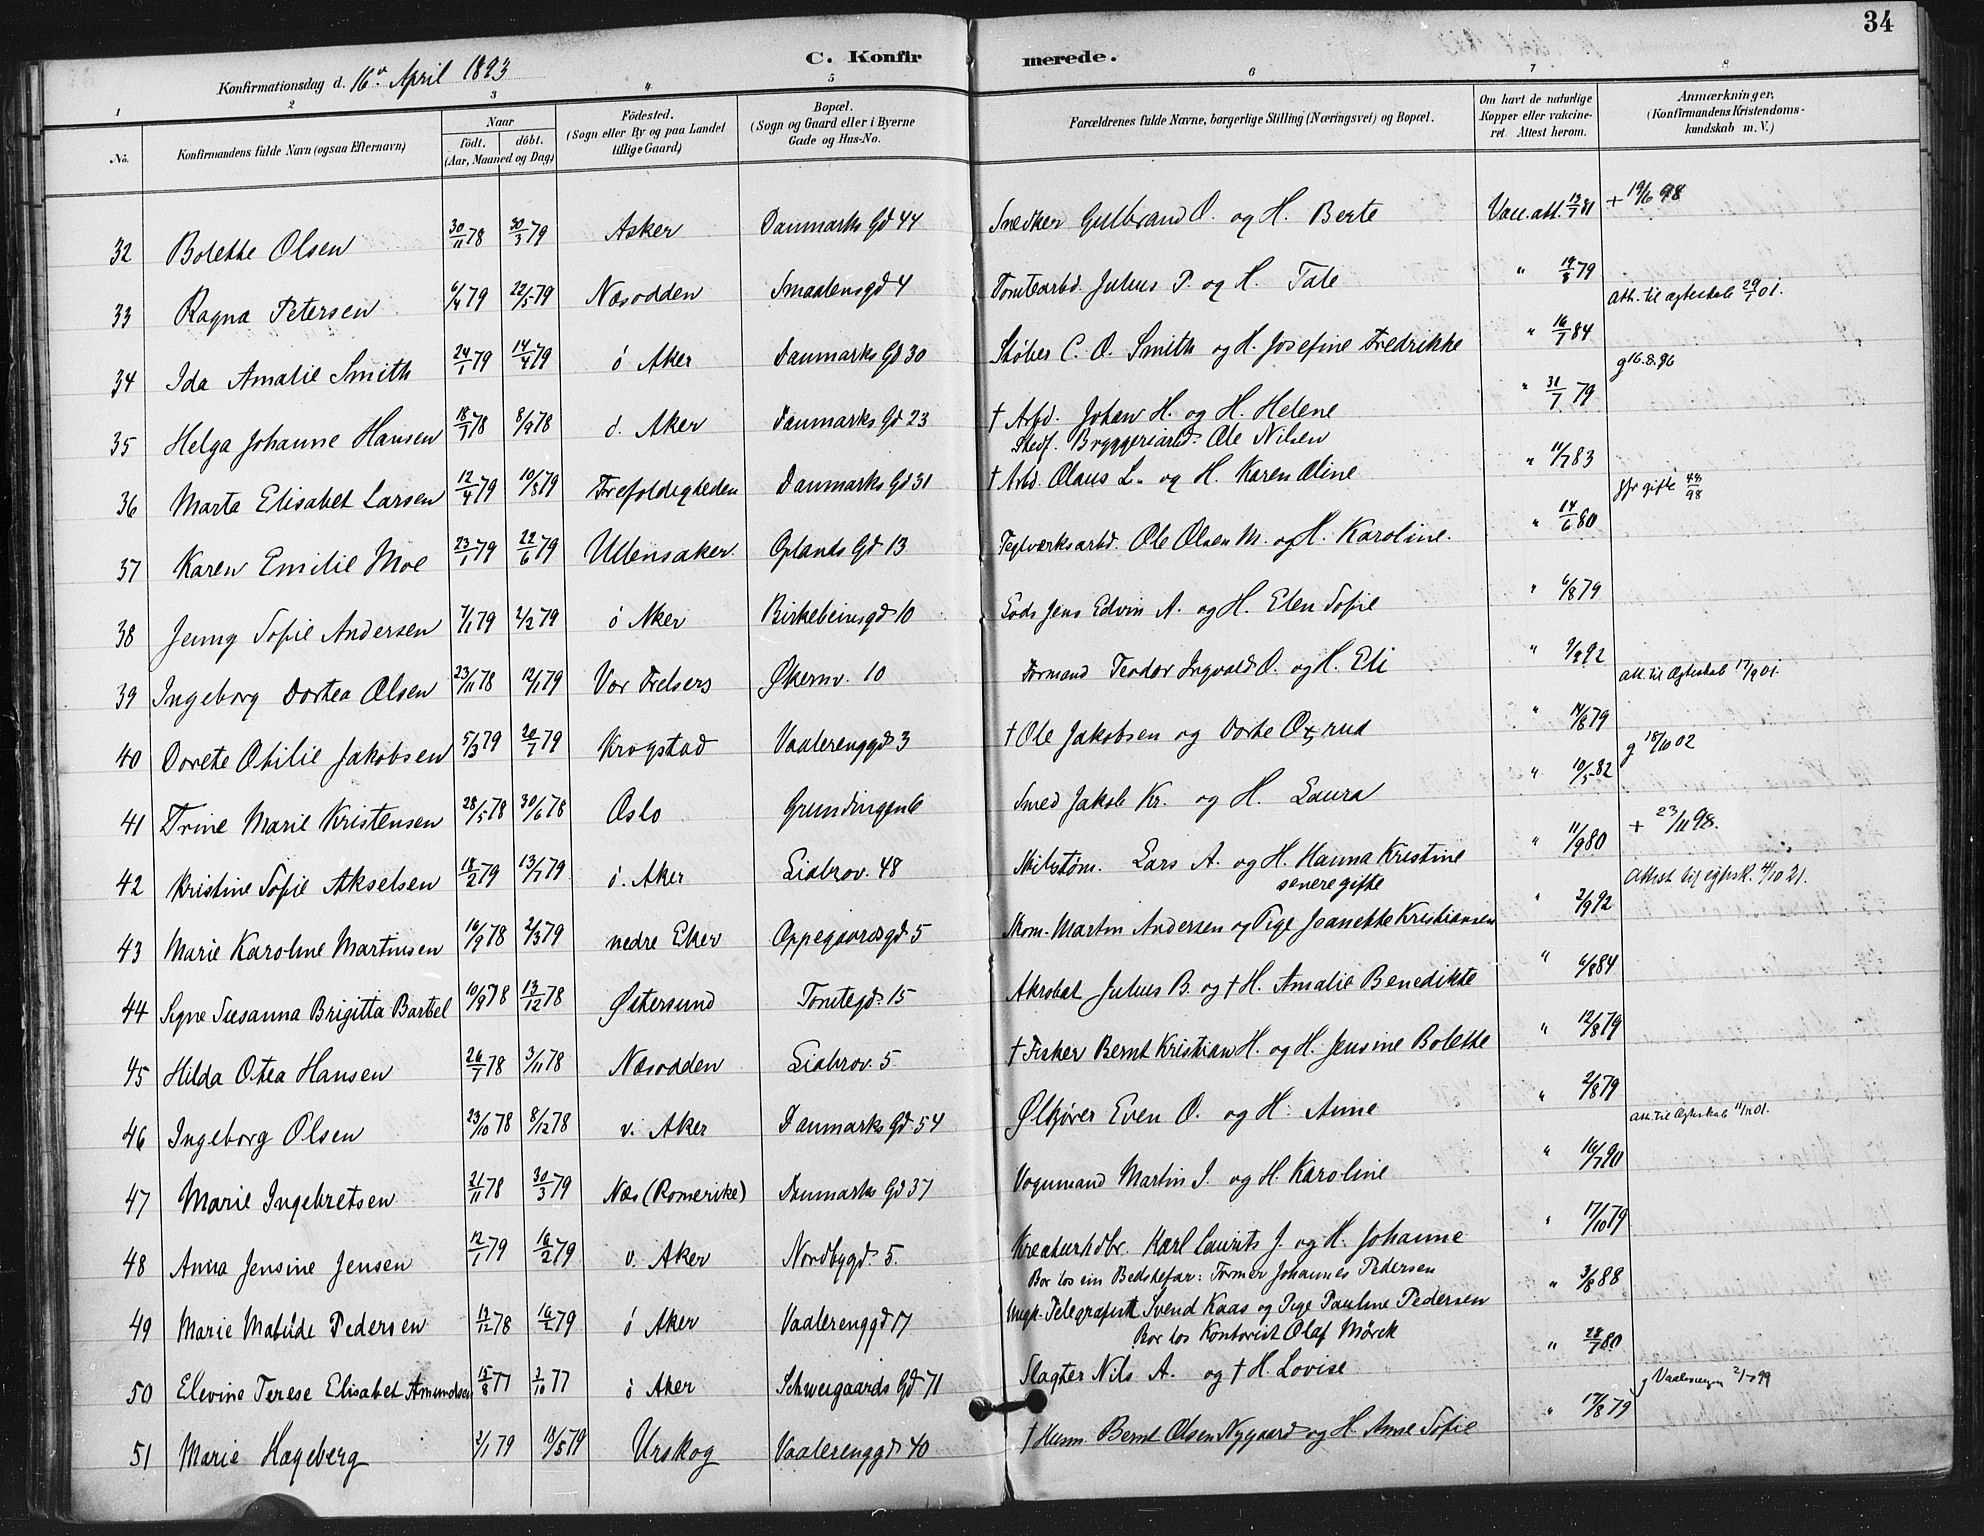 34
C. Konfir merede.
Konfirmationsdag d. 16de April 1893
1 2 3 4 5 6 7 8
No. Konfirmandens fulde Navn (ogsaa Efternavn) Naar født. døbt. (Aar, Maaned og Dag)
Fødested. (Sogn eller By og paa Landet tillige Gaard)
Bopæl. (Sogn og Gaard eller i Byerne Gade og Hus-No.
Forældrenes fulde Navne, borgerlige Stilling (Næringsvei) og Bopæl.
Om havt de naturlige Kopper eller vakcineret. Attest herom.
Anmærkninger, (Konfirmandens Kristendomskundskab m. V.)
32 Bolette Olsen 30/11 78 30/3 79 Asker Danmarks Gd 44 Snedker Gulbrand O. og H. Berte Vacc. att. 12/7 81 + 19/6 98
33 Ragna Petersen 6/4 79 22/5 79 Næsodden Smaalensgd 4 Tomtearbd. Julius P. og H. Tale " 19/8 79 Att. til ægteskab 29/1 01.
34 Ida Amalie Smith 24/1 79 14/4 79 ö Aker Danmarks Gd 30 Støber C. O. Smith og H. Josefine Fredrikke " 16/7 84 g 16.8.96
35 Helga Johanne Hansen 18/7 78 8/9 78 ö. Aker Danmarks Gd 23 † Arbd. Johan H. og H. Helene " 31/7 79
Stedf. Bryggeriarbd. Ole Nilsen
36 Marta Elisabet Larsen 12/4 79 10/8 79 Trefoldigheden Danmarks Gd 31 † Arbd. Olaus L. og H. Karen Oline " 11/7 83 gifte 98
37 Karen Emilie Moe 23/1 79 22/6 79 Ullensaker. Oplands Gd 13 Teglværksarbd. Ole Olsen M. og H. Karoline. " 14/6 80
38 Jenny Sofie Andersen 7/1 79 2/2 79 ö Aker Birkebeinsgd 10 Jens Edvin A. og H. Elen Sofie " 6/8 79
39 Ingeborg Dortea Olsen 23/11 78 12/1 79 Vor Frelsers Økernv. 10 Formand Teodor Ingvald O. og H. Eli " 9/9 92 Att. til Ægteskab 17/9 01.
40 Dorete Otilie Jakobsen 5/3 79 20/7 79 Krogstad Vaalerenggd 3 † Ole Jakobsen og Dorte " 14/8 79 g 18/10 02
41 Trine Marie Kristensen 28/5 78 30/6 78 Oslo Grundingen 6 Smed Jakob Kr. og H. Laura " 10/5 82
42 Kristine Sofie Akselsen 18/2 79 13/7 79 ö. Aker Liabrov. 48 Lars A. og H. Hanna Kristine " 11/9 80 + 23/11 98.
senere gifte
43 Marie Karoline Martinsen 16/9 78 2/3 79 nedre Eker Oppegaardsgd 5 Skom. Martin Andersen og Pige Jeanette Kristiansen " 2/9 92 Attest til egtesk. 4/10 21.
44 Signe Susanna Brigitta Barbel 10/9 78 13/12 78 Østersund Tomtegd. 15 Akrobat Julius B. og † H. Amalie Benedikte " 6/8 84
45 Hilda Otea Hansen 26/7 78 3/11 78 Næsodden Liabrov. 5 † Fisker Bernt Kristian H. og H. Jensine Bolette " 12/8 79
46 Ingeborg Olsen 23/10 78 8/12 78 v. Aker Danmarks Gd. 54 Ølkjører Even O. og H. Anne " 2/8 79
47 Marie Ingebretsen 21/11 78 30/3 79 Næs (Romerike) Danmarks Gd 37 Vognmand Martin I. og H. Karoline " 16/7 90 Att. til Ægteskab 11/11 01.
48 Anna Jensine Jensen 12/1 79 16/2 79 v. Aker Nordbygd. 5. Kreaturhdlr. Karl Laurits J. og H. Johanne " 17/10 79
Bor hos sin Bedstefar: Former Johannes Pedersen
49 Marie Matilde Pedersen 13/12 78 16/2 79 ö Aker Vaalerenggd 17 Ungk. Telegrafist Svend Kaas og Pige Pauline Pedersen " 3/8 88
Bor hos Kontorist Olaf Mörck
50 Elevine Terese Elisabet Amundsen 15/8 77 2/10 77 ö Aker Schweigaards Gd 71 Slagter Nils A. og † H. Lovise " 28/7 80
51 Marie Hageberg 2/1 79 18/5 79 Urskog Vaalerenggd 40 † Husm. Bernt Olsen Nygaard og H. Anne Sofie " 17/8 79 g Vaalerengen 2/7 99